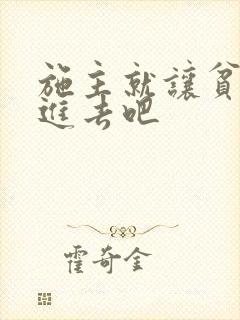 施主就讓貧
進去吧
霍奇金